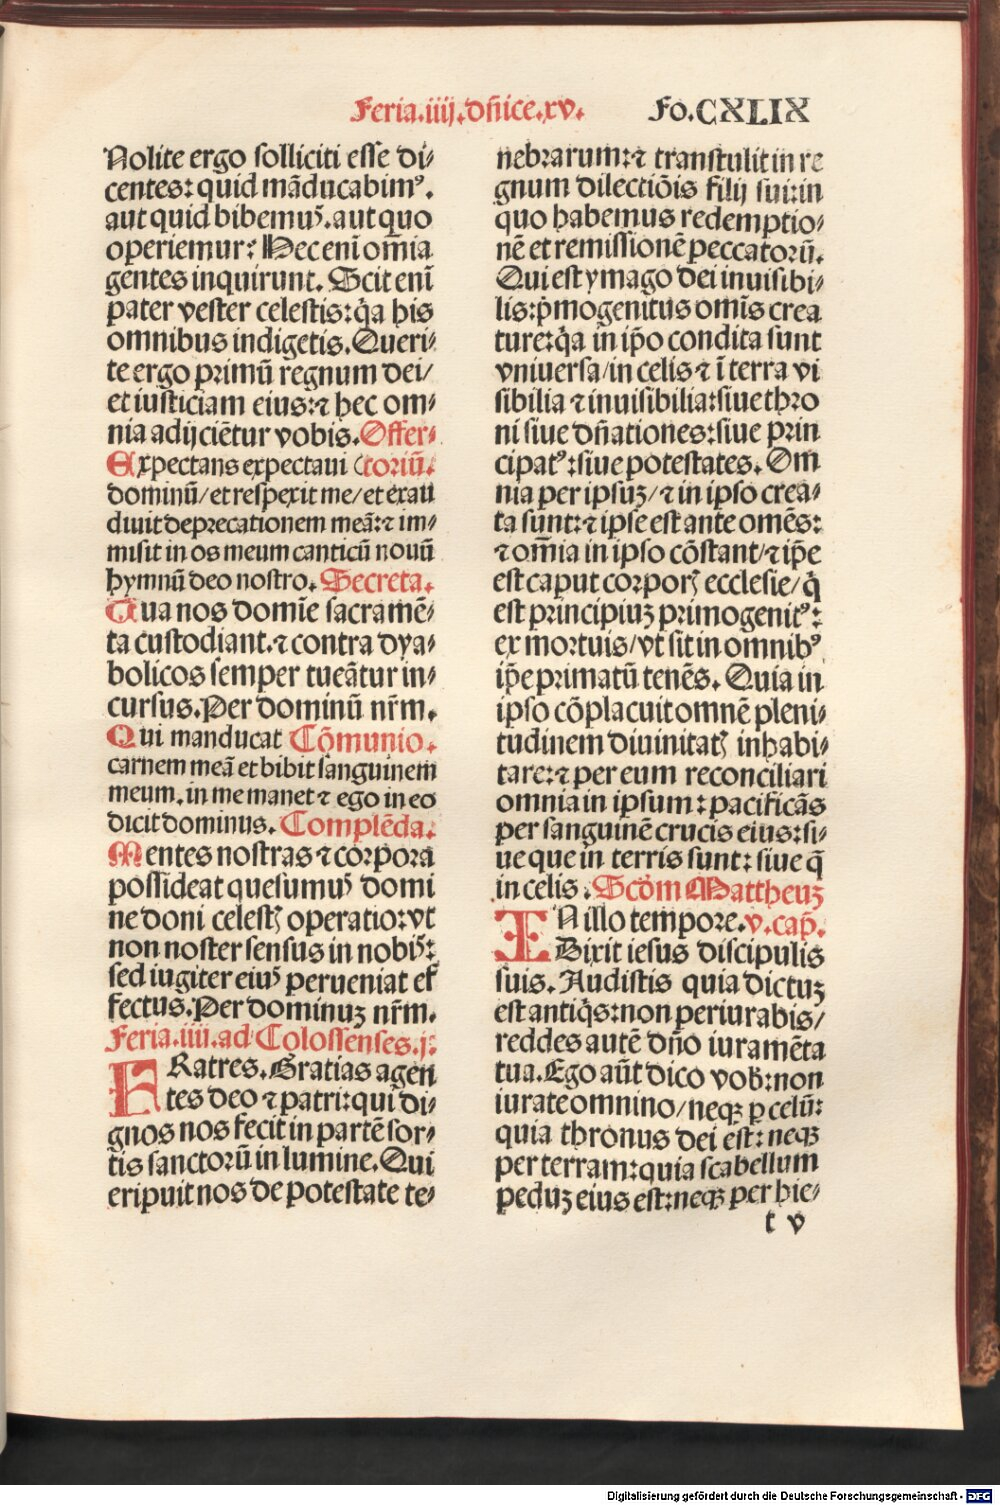 Feria.iiij.dn̄ice.xv. Fo.CXLIX
Nolite ergo solliciti esse di⸗
centes: quid māducabimꝰ.
aut quid bibemuꝰ. aut quo
operiemur: Hec enī om̄ia
gentes inquirunt. Scit enī
pater vester celestis: q̄a his
omnibus indigetis. Queri⸗
te ergo primū regnum dei/
et iusticiam eius: ⁊ hec om⸗
nia adijciētur vobis. Offer⸗
Expectans expectaui (toriū.
dominū/ et respexit me/ et exau
diuit deprecationem meā: ⁊ im⸗
misit in os meum canticū nouū
hymnū deo nostro. Secreta.
Tua nos domīe sacramē⸗
ta custodiant. ⁊ contra dya⸗
bolicos semper tueātur in⸗
cursus. Per dominū nr̄m.
Qui manducat Cōmunio.
carnem meā et bibit sanguinem
meum. in me manet ⁊ ego in eo
dicit dominus. Complēda.
Mentes nostras ⁊ corpora
possideat quesumuꝰ domi
ne doni celestꝭ operatio: vt
non noster sensus in nobiꝰ:
sed iugiter eiuꝰ perueniat ef
fectus. Per dominuꝫ nr̄m.
Feria.iiii.ad Colossenses.j:
FRatres. Gratias agen
tes deo ⁊ patri: qui di⸗
gnos nos fecit in partē sor⸗
tis sanctorū in lumine. Qui
eripuit nos de potestate te⸗
nebrarum: ⁊ transtulit in re
gnum dilectiōis filij sui: in
quo habemus redemptio⸗
nē et remissionē peccatorū.
Qui est ymago dei inuisibi⸗
lis: p̄mogenitus omīs crea
ture: q̄a in ip̄o condita sunt
vniuersa/ in celis ⁊ ī terra vi
sibilia ⁊ inuisibilia: siue thro
ni siue dn̄ationes: siue prin
cipatꝰ: siue potestates. Om
nia per ipsuꝫ/ ⁊ in ipso crea⸗
ta sunt: ⁊ ipse est ante omēs:
⁊ om̄ia in ipso cōstant/ ⁊ ip̄e
est caput corporꝭ ecclesie/ q̄
est principiuꝫ primogenitꝰ:
ex mortuis/ vt sit in omnibꝰ
ip̄e primatū tenēs. Quia in
ipso cōplacuit omnē pleni⸗
tudinem diuinitatꝭ inhabi⸗
tare: ⁊ per eum reconciliari
omnia in ipsum: pacificās
per sanguinē crucis eius: si⸗
ue que in terris sunt: siue q̄
in celis. Scd̄m Mattheuꝫ
IN illo tempore. v. cap̄.
Dixit iesus discipulis
suis. Audistis quia dictuꝫ
est antiq̄s: non periurabis/
reddes autē dn̄o iuramēta
tua. Ego aūt dico vob̄: non
iurate omnino/ neqꝫ ꝑ celū:
quia thronus dei est: neqꝫ
per terram: quia scabellum
peduꝫ eius est: neqꝫ per hie⸗
t v
Digitalisierung gefördert durch die Deutsche Forschungsgemeinschaft - DFG